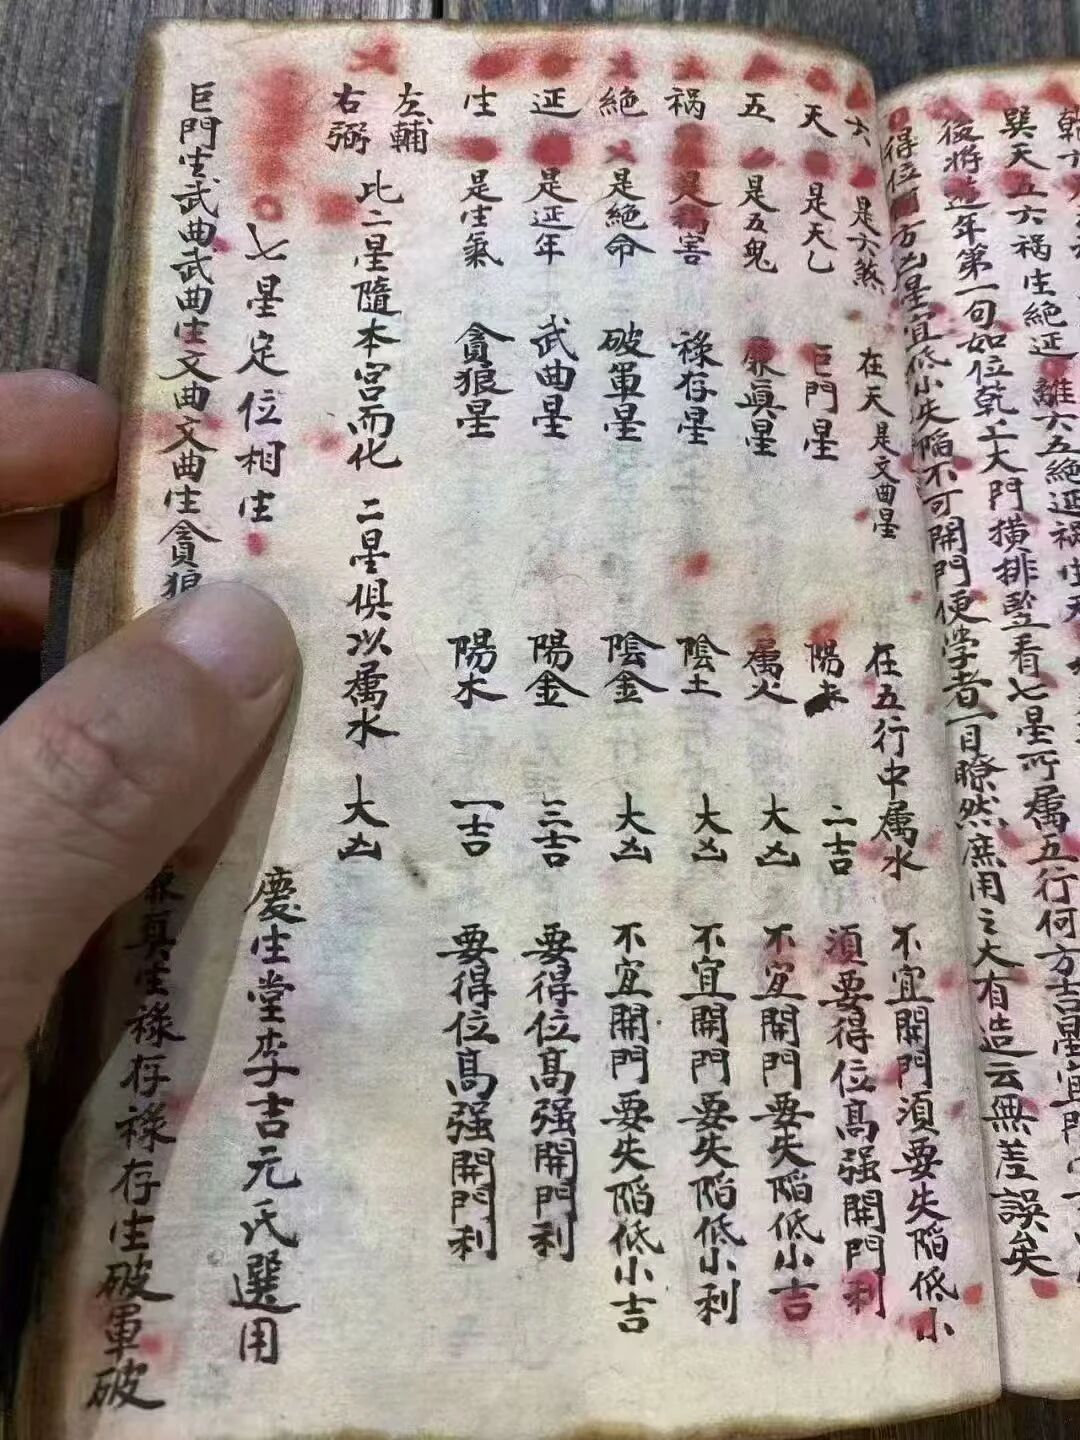 巽天五六祸生绝延
離六五絕延祸生天
後將遊年第一句如位乾上大門横排竪看七星所属五行何方吉星宜開
得位何方凶星宜低小失陷不可開門便学者一目瞭然庶用之大有造云無差誤矣
六 是六煞 在天是文曲星 在五行中属水 不宜開門須要失陷低小
天 是天乙 巨門星 陽土 二吉 須要得位高强開門利
五 是五鬼 廉真星 属火 大凶 不宜開門要失陷低小吉
祸 是祸害 祿存星 陰土 大凶 不宜開門要失陷低小利
絕 是絕命 破軍星 陰金 大凶 不宜開門要失陷低小吉
延 是延年 武曲星 陽金 三吉 要得位高强開門利
生 是生氣 貪狼星 陽木 一吉 要得位高强開門利
左輔
右弼
比二星隨本宮而化 二星俱以属水 大凶
七星定位相生 慶生堂李吉元氏選用
巨門生武曲武曲生文曲文曲生貪狼 廉真生祿存祿存生破軍破